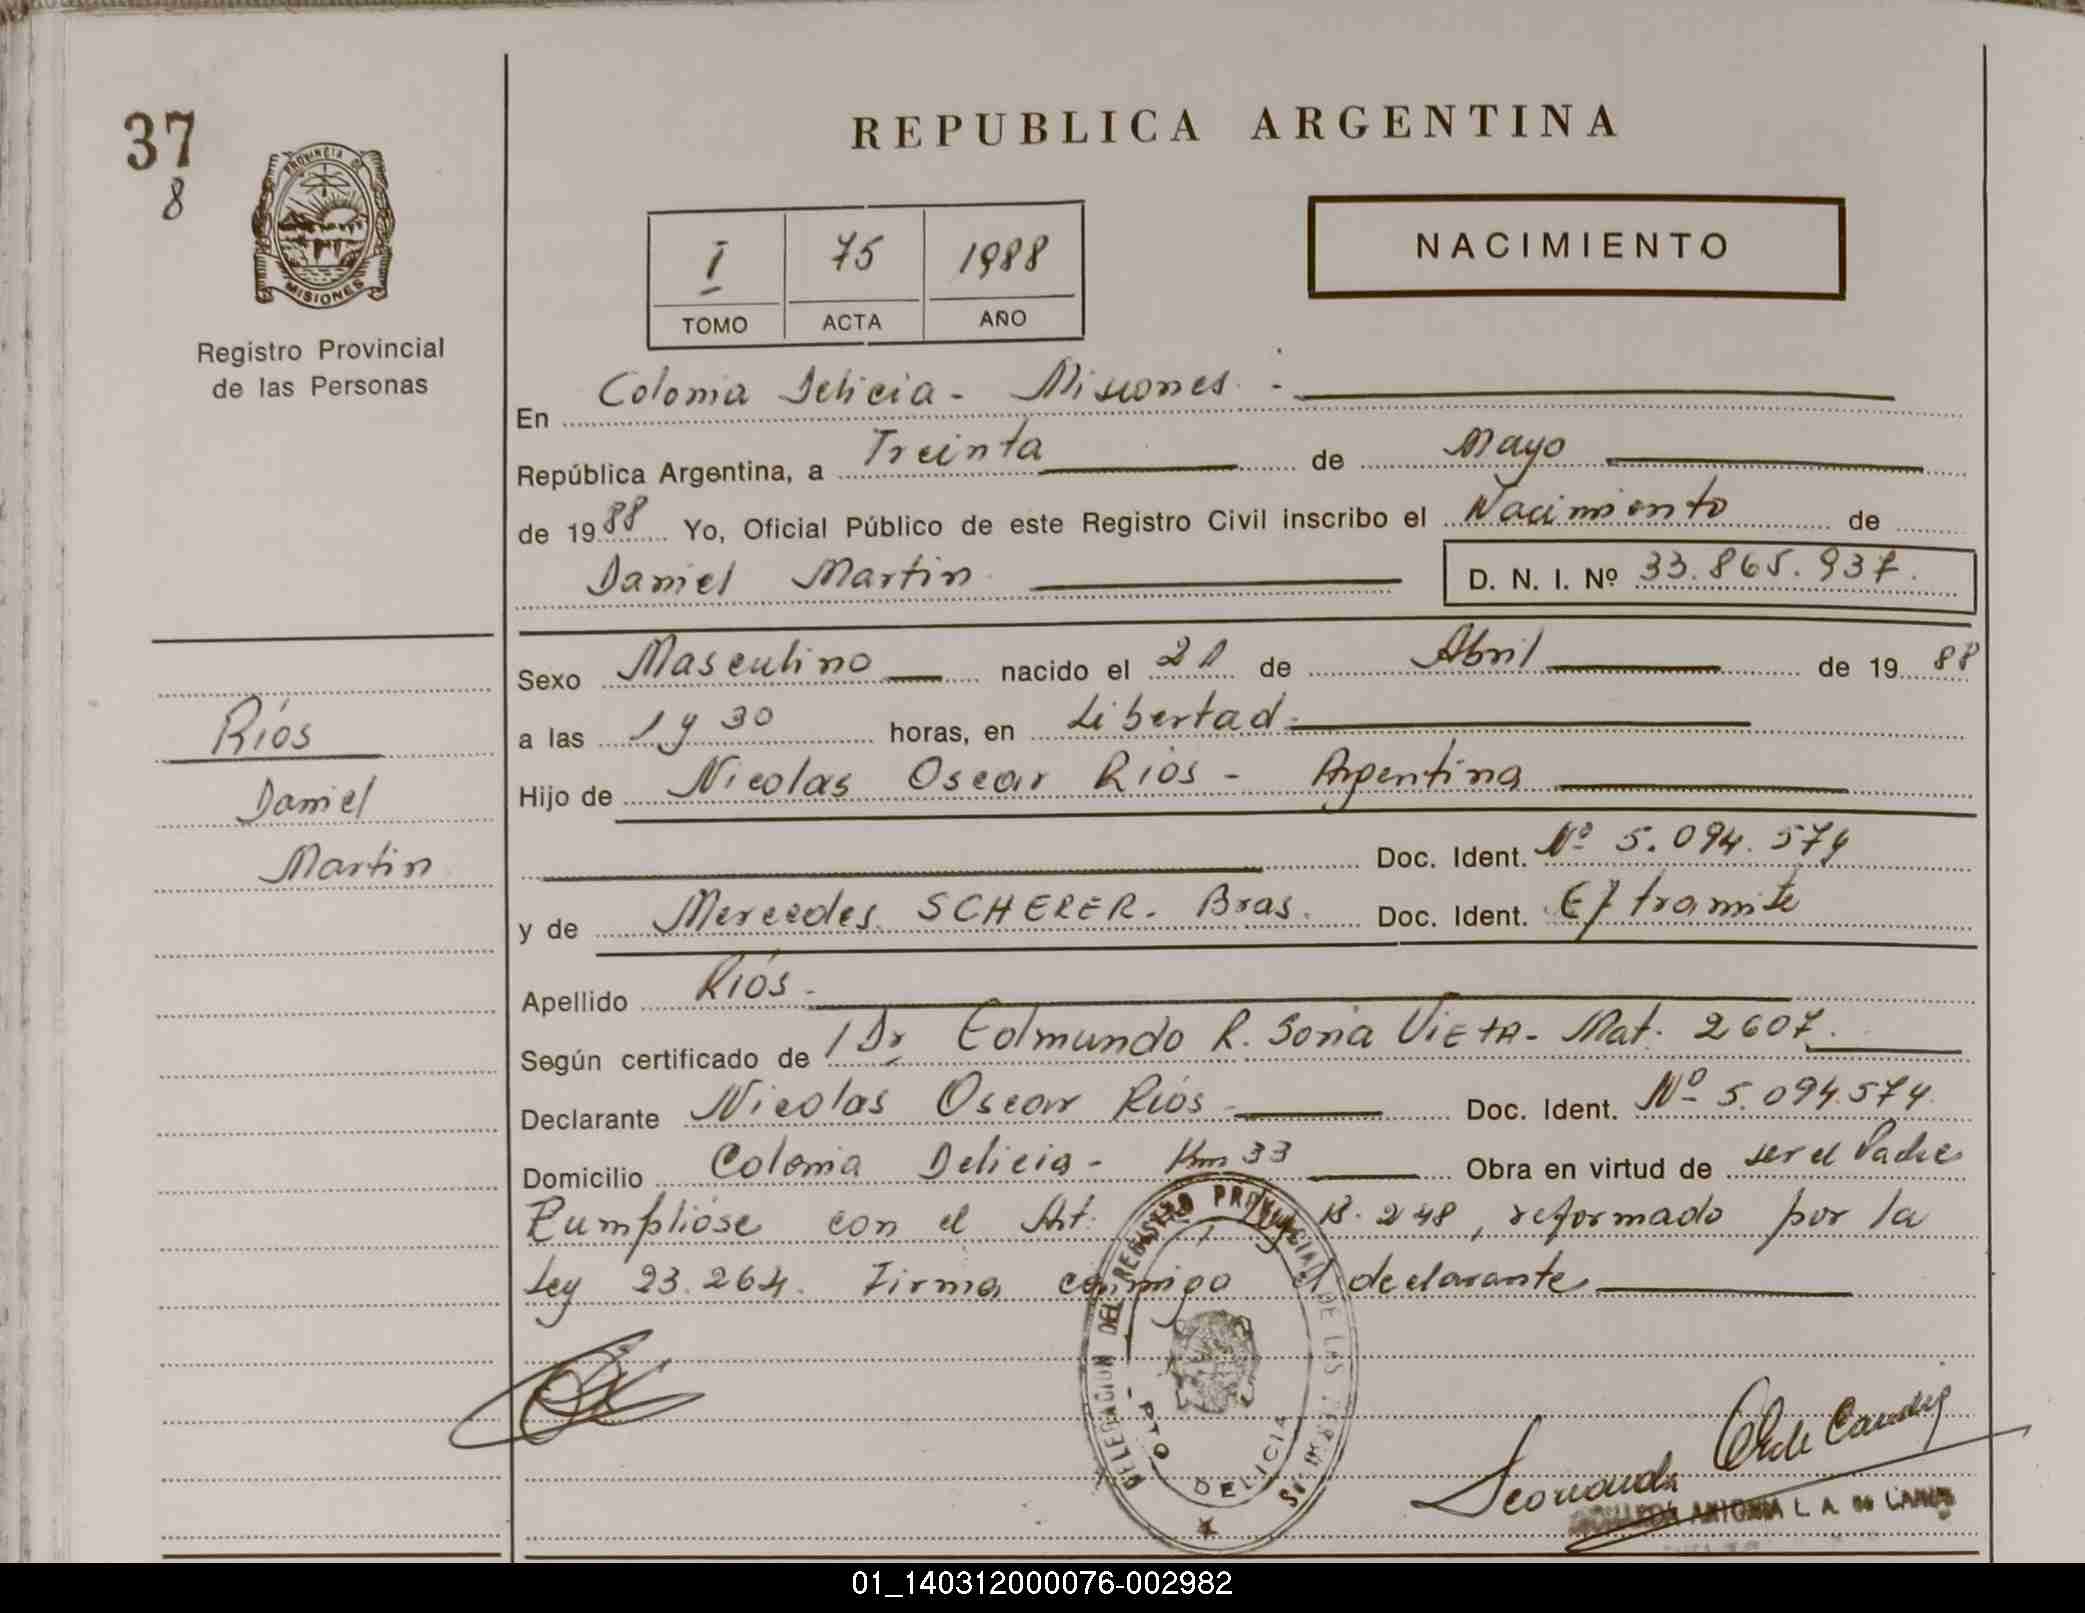 37
8
PROVINCIA DE
MISIONES
Registro Provincial
de las Personas
REPUBLICA ARGENTINA
I 75 1988
TOMO ACTA AÑO
NACIMIENTO
En Colonia Delicia - Misiones. -
República Argentina, a Treinta de Mayo
de 1988 Yo, Oficial Público de este Registro Civil inscribo el Nacimiento de
Daniel Martin D. N. I. Nº 33.865.937.
Sexo Masculino nacido el 21 de Abril de 1988
a las 1 y 30 horas, en Libertad.
Hijo de Nicolas Oscar Ríos - Argentina
Doc. Ident. Nº 5.094.574
y de Mercedes SCHERER. Bras. Doc. Ident. E/ tramite
Apellido Ríos -
Según certificado de 1 Dr Edmundo R. Soria VIETA - Mat. 2607.
Declarante Nicolas Oscar Ríos - Doc. Ident. Nº 5.094.574
Domicilio Colonia Delicia - Km 33 Obra en virtud de ser el Padre
Cumpliose con el Art. Ley 18.248, reformado por la
Ley 23.264. Firma conmigo el declarante
Ríos
Daniel
Martin
DELEGACION DEL REGISTRO PROVINCIAL DE LAS PERSONAS
- PTO DELICIA
ANTONIA L. A. de
01_140312000076-002982